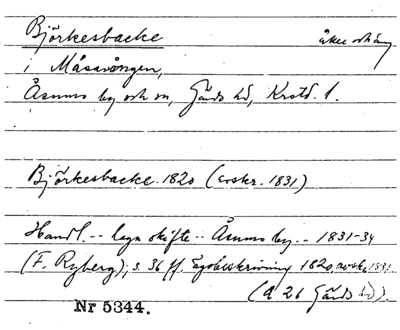 Björkesbacke åker och äng
i Måsavången,
Åsums by och sn, Gärds hd, Krstd. l.
Björkesbacke 1820 (avskr. 1831)
Handl. -- laga skifte -- Åsums by -- 1831-34
(F. Ryberg), s. 36 ff. Egobeskrivning 1820, avskr. 1831
(A 26 Gärds hd).
Nr 5344.